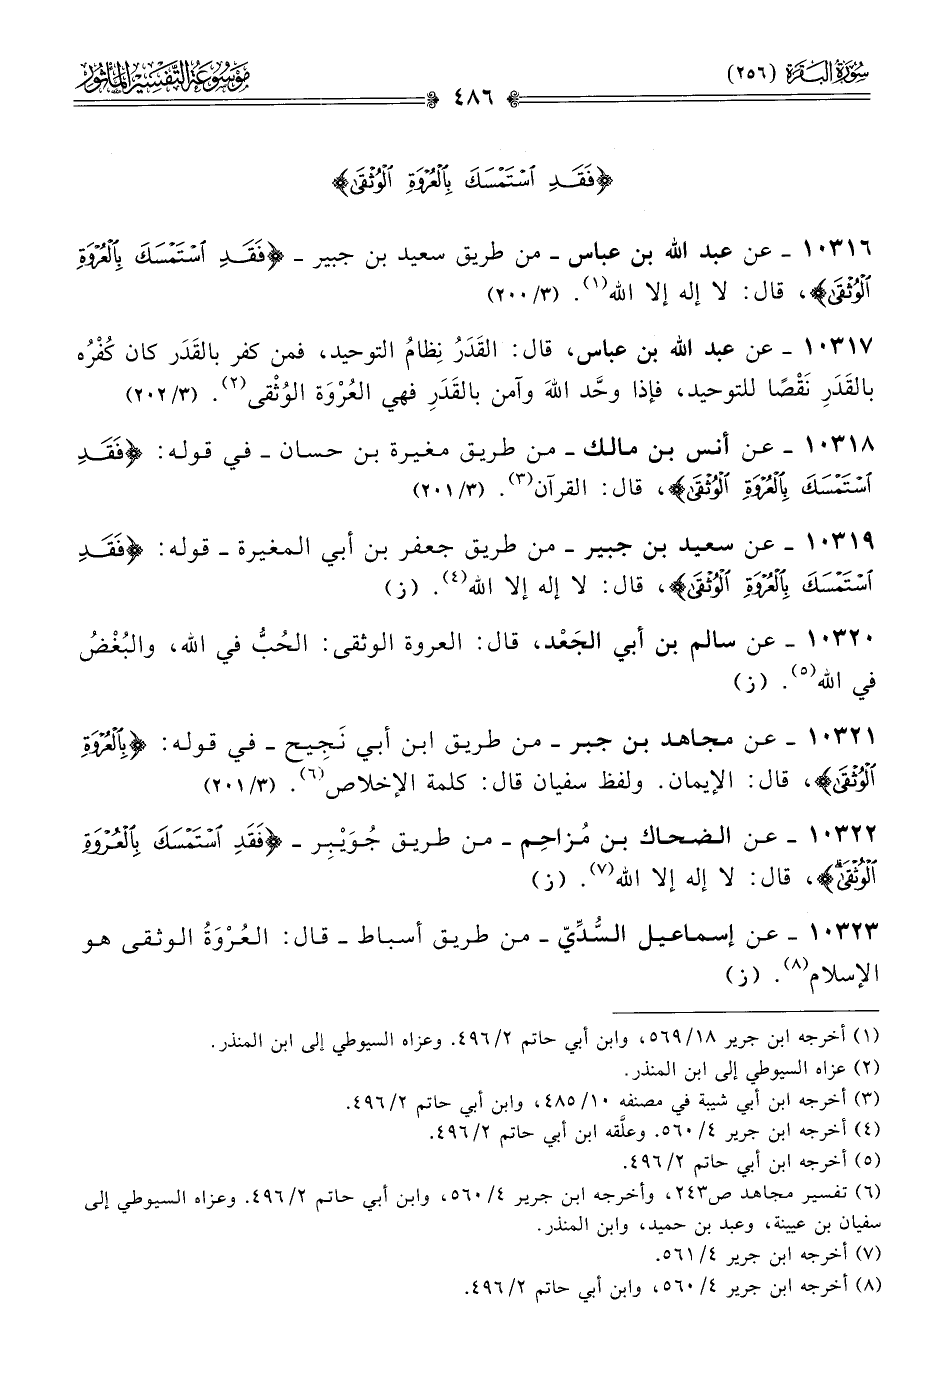 سورة البقرة (٢٥٦)
موسوعة التفسير المأثور
٤٨٦
﴿فَقَدِ ٱسْتَمْسَكَ بِٱلْعُرْوَةِ ٱلْوُثْقَىٰ﴾
١٠٣١٦ ـ عن عبد الله بن عباس ـ من طريق سعيد بن جبير ـ ﴿فَقَدِ ٱسْتَمْسَكَ بِٱلْعُرْوَةِ
ٱلْوُثْقَىٰ﴾، قال: لا إله إلا الله(١). (٣/٢٠٠)
١٠٣١٧ ـ عن عبد الله بن عباس، قال: القَدَرُ نِظامُ التوحيد، فمن كفر بالقَدَر كان كُفْرُه
بالقَدَرِ نَقْصًا للتوحيد، فإذا وحَّد اللهَ وآمن بالقَدَرِ فهي العُرْوَة الوُثْقى(٢). (٣/٢٠٢)
١٠٣١٨ ـ عن أنس بن مالك ـ من طريق مغيرة بن حسان ـ في قوله: ﴿فَقَدِ
ٱسْتَمْسَكَ بِٱلْعُرْوَةِ ٱلْوُثْقَىٰ﴾، قال: القرآن(٣). (٣/٢٠١)
١٠٣١٩ ـ عن سعيد بن جبير ـ من طريق جعفر بن أبي المغيرة ـ قوله: ﴿فَقَدِ
ٱسْتَمْسَكَ بِٱلْعُرْوَةِ ٱلْوُثْقَىٰ﴾، قال: لا إله إلا الله(٤). (ز)
١٠٣٢٠ ـ عن سالم بن أبي الجَعْد، قال: العروة الوثقى: الحُبُّ في الله، والبُغْضُ
في الله(٥). (ز)
١٠٣٢١ ـ عن مجاهد بن جبر ـ من طريق ابن أبي نَجِيح ـ في قوله: ﴿بِٱلْعُرْوَةِ
ٱلْوُثْقَىٰ﴾، قال: الإيمان. ولفظ سفيان قال: كلمة الإخلاص(٦). (٣/٢٠١)
١٠٣٢٢ ـ عن الضحاك بن مُزاحِم ـ من طريق جُوَيْبِر ـ ﴿فَقَدِ ٱسْتَمْسَكَ بِٱلْعُرْوَةِ
ٱلْوُثْقَىٰ﴾، قال: لا إله إلا الله(٧). (ز)
١٠٣٢٣ ـ عن إسماعيل السُّدِّيّ ـ من طريق أسباط ـ قال: العُرْوَةُ الوثقى هو
الإسلام(٨). (ز)
(١) أخرجه ابن جرير ١٨/٥٦٩، وابن أبي حاتم ٢/٤٩٦. وعزاه السيوطي إلى ابن المنذر.
(٢) عزاه السيوطي إلى ابن المنذر.
(٣) أخرجه ابن أبي شيبة في مصنفه ١٠/٤٨٥، وابن أبي حاتم ٢/٤٩٦.
(٤) أخرجه ابن جرير ٤/٥٦٠. وعلَّقه ابن أبي حاتم ٢/٤٩٦.
(٥) أخرجه ابن أبي حاتم ٢/٤٩٦.
(٦) تفسير مجاهد ص٢٤٣، وأخرجه ابن جرير ٤/٥٦٠، وابن أبي حاتم ٢/٤٩٦. وعزاه السيوطي إلى
سفيان بن عيينة، وعبد بن حميد، وابن المنذر.
(٧) أخرجه ابن جرير ٤/٥٦١.
(٨) أخرجه ابن جرير ٤/٥٦٠، وابن أبي حاتم ٢/٤٩٦.